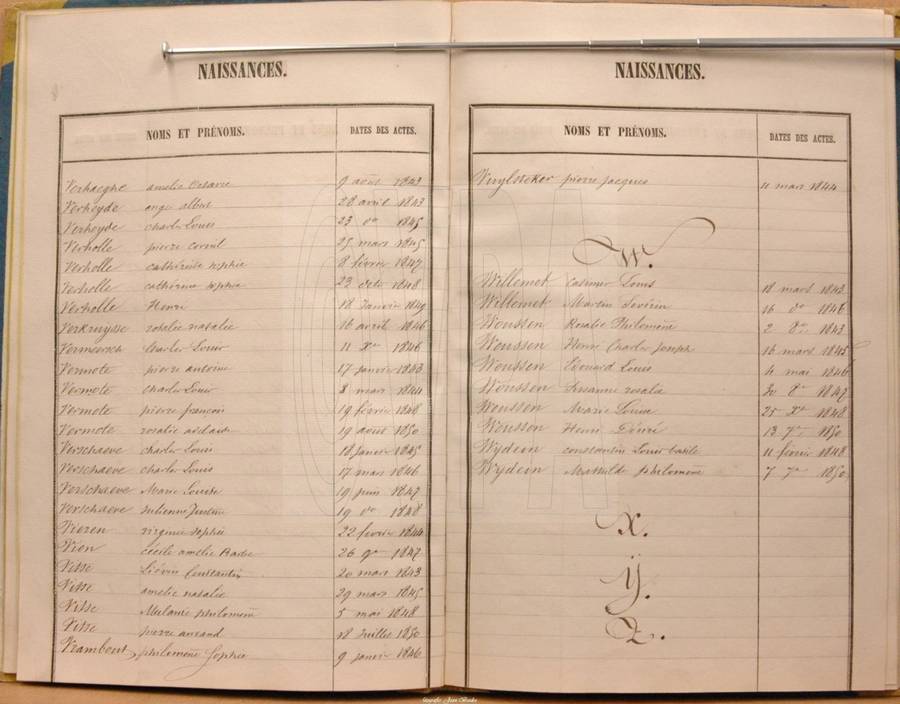 NAISSANCES.
NOMS ET PRÉNOMS. DATES DES ACTES.
Verhaeghe amelie Césarie 9 août 1843
Verheyde ange albert 28 avril 1843
Verheyde charles Louis 23 do 1845
Verholle pierre 25 mars 1845
Verholle cathérine sophie 8 février 1847
Verholle cathérine sophie 23 1848
Verholle Henri 18 Janvier 1849
Verkruysse rosalie natalie 16 avril 1846
Vermeersch Charles Louis 11 Xre 1846
Vermote pierre antoine 17 janvier 1843
Vermote charles Louis 8 mars 1844
Vermote pierre françois 19 février 1848
Vermote rosalie adelaide 19 août 1850
Verschaeve charles Louis 18 janvier 1845
Verschaeve charles Louis 17 mars 1846
Verschaeve Marie Louise 19 juin 1847
Verschaeve 19 do 1848
Vieren virginie sophie 22 février 1844
Vien cécile amelie 26 9re 1847
Visse Liévin Constantin 20 mars 1843
Visse amelie natalie 29 mars 1845
Visse Mélanie philomene 5 mai 1848
Visse pierre amand 18 Juillet 1850
Vrambout philomene Sophie 9 janvier 1846
NAISSANCES.
NOMS ET PRÉNOMS. DATES DES ACTES.
Vuylsteker pierre jacques 11 mars 1844
W.
Willemet Casimir Louis 18 mars 1843
Willemet Martin Séverin 16 do 1846
Woussen Rosalie Philomene 2 1843
Woussen Henri Charles Joseph 16 mars 1845
Woussen Edouard Louis 4 mai 1846
Woussen rosalie 30 8re 1847
Woussen Marie Louise 25 Xre 1848
Woussen Henri Désiré 13 7re 1850
Wydein constantin Louis basile 11 février 1848
Wydein Mathilde philomene 7 7re 1850
X.
ÿ.
Z.